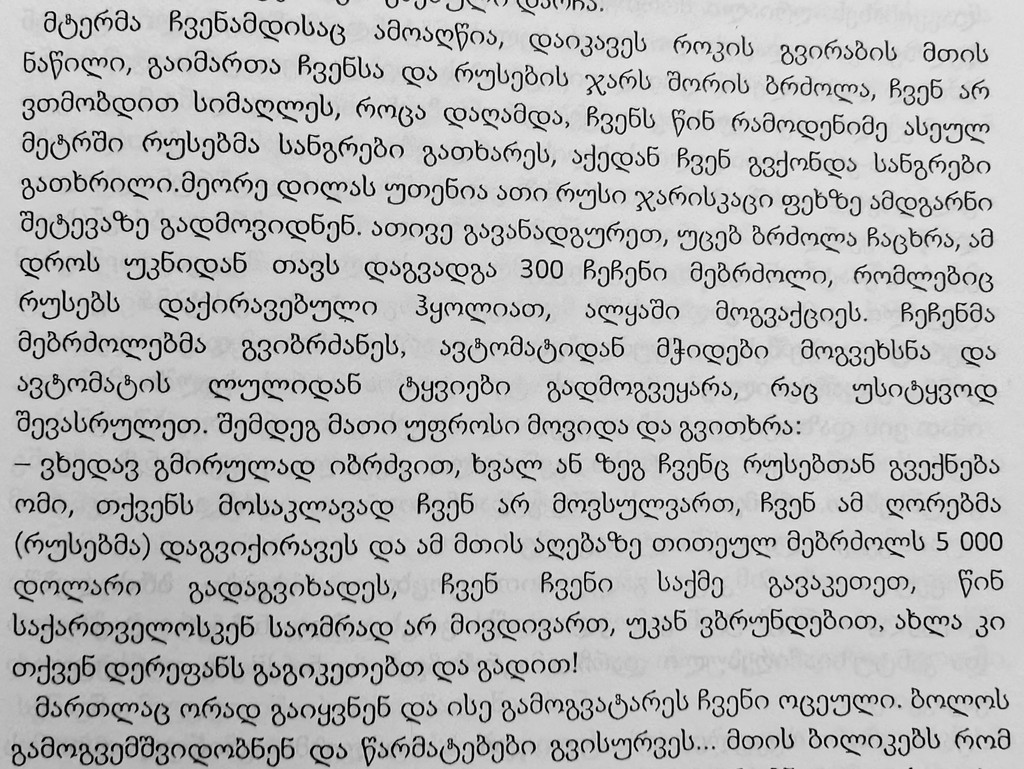 მტერმა ჩვენამდისაც ამოაღწია, დაიკავეს როკის გვირაბის მთის
ნაწილი, გაიმართა ჩვენსა და რუსების ჯარს შორის ბრძოლა, ჩვენ არ
ვთმობდით სიმაღლეს, როცა დაღამდა, ჩვენს წინ რამოდენიმე ასეულ
მეტრში რუსებმა სანგრები გათხარეს, აქედან ჩვენ გვქონდა სანგრები
გათხრილი.მეორე დილას უთენია ათი რუსი ჯარისკაცი ფეხზე ამდგარნი
შეტევაზე გადმოვიდნენ. ათივე გავანადგურეთ, უცებ ბრძოლა ჩაცხრა, ამ
დროს უკნიდან თავს დაგვადგა 300 ჩეჩენი მებრძოლი, რომლებიც
რუსებს დაქირავებული ჰყოლიათ, ალყაში მოგვაქციეს. ჩეჩენმა
მებრძოლებმა გვიბრძმანეს, ავტომატიდან მჭიდები მოგვეხსნა და
ავტომატის ლულიდან ტყვიები გადმოგვეყარა, რაც უსიტყვოდ
შევასრულეთ. შემდეგ მათი უფროსი მოვიდა და გვითხრა:
– ვხედავ გმირულად იბრძვით, ხვალ ან ზეგ ჩვენც რუსებთან გვექნება
ომი, თქვენს მოსაკლავად ჩვენ არ მოვსულვართ, ჩვენ ამ ღორებმა
(რუსებმა) დაგვიქირავეს და ამ მთის აღებაზე თითეულ მებრძოლს 5 000
დოლარი გადაგვიხადეს, ჩვენ ჩვენი საქმე გავაკეთეთ, წინ
საქართველოსკენ საომრად არ მივდივართ, უკან ვბრუნდებით, ახლა კი
თქვენ დერეფანს გაგიკეთებთ და გადით!
მართლაც ორად გაიყვნენ და ისე გამოგვატარეს ჩვენი ოცეული. ბოლოს
გამოგვემშვიდობნენ და წარმატებები გვისურვეს... მთის ბილიკებს რომ